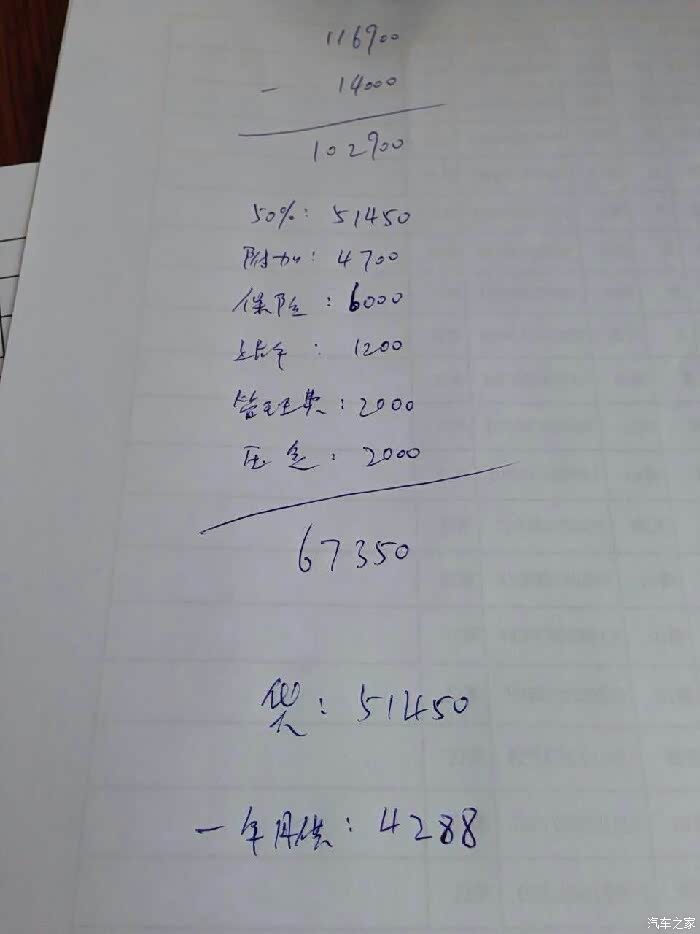 116900
- 14000
102900
50%: 51450
附加: 4700
保险: 6000
上牌: 1200
管理费: 2000
压金: 2000
67350
贷: 51450
一年月供: 4288
汽车之家